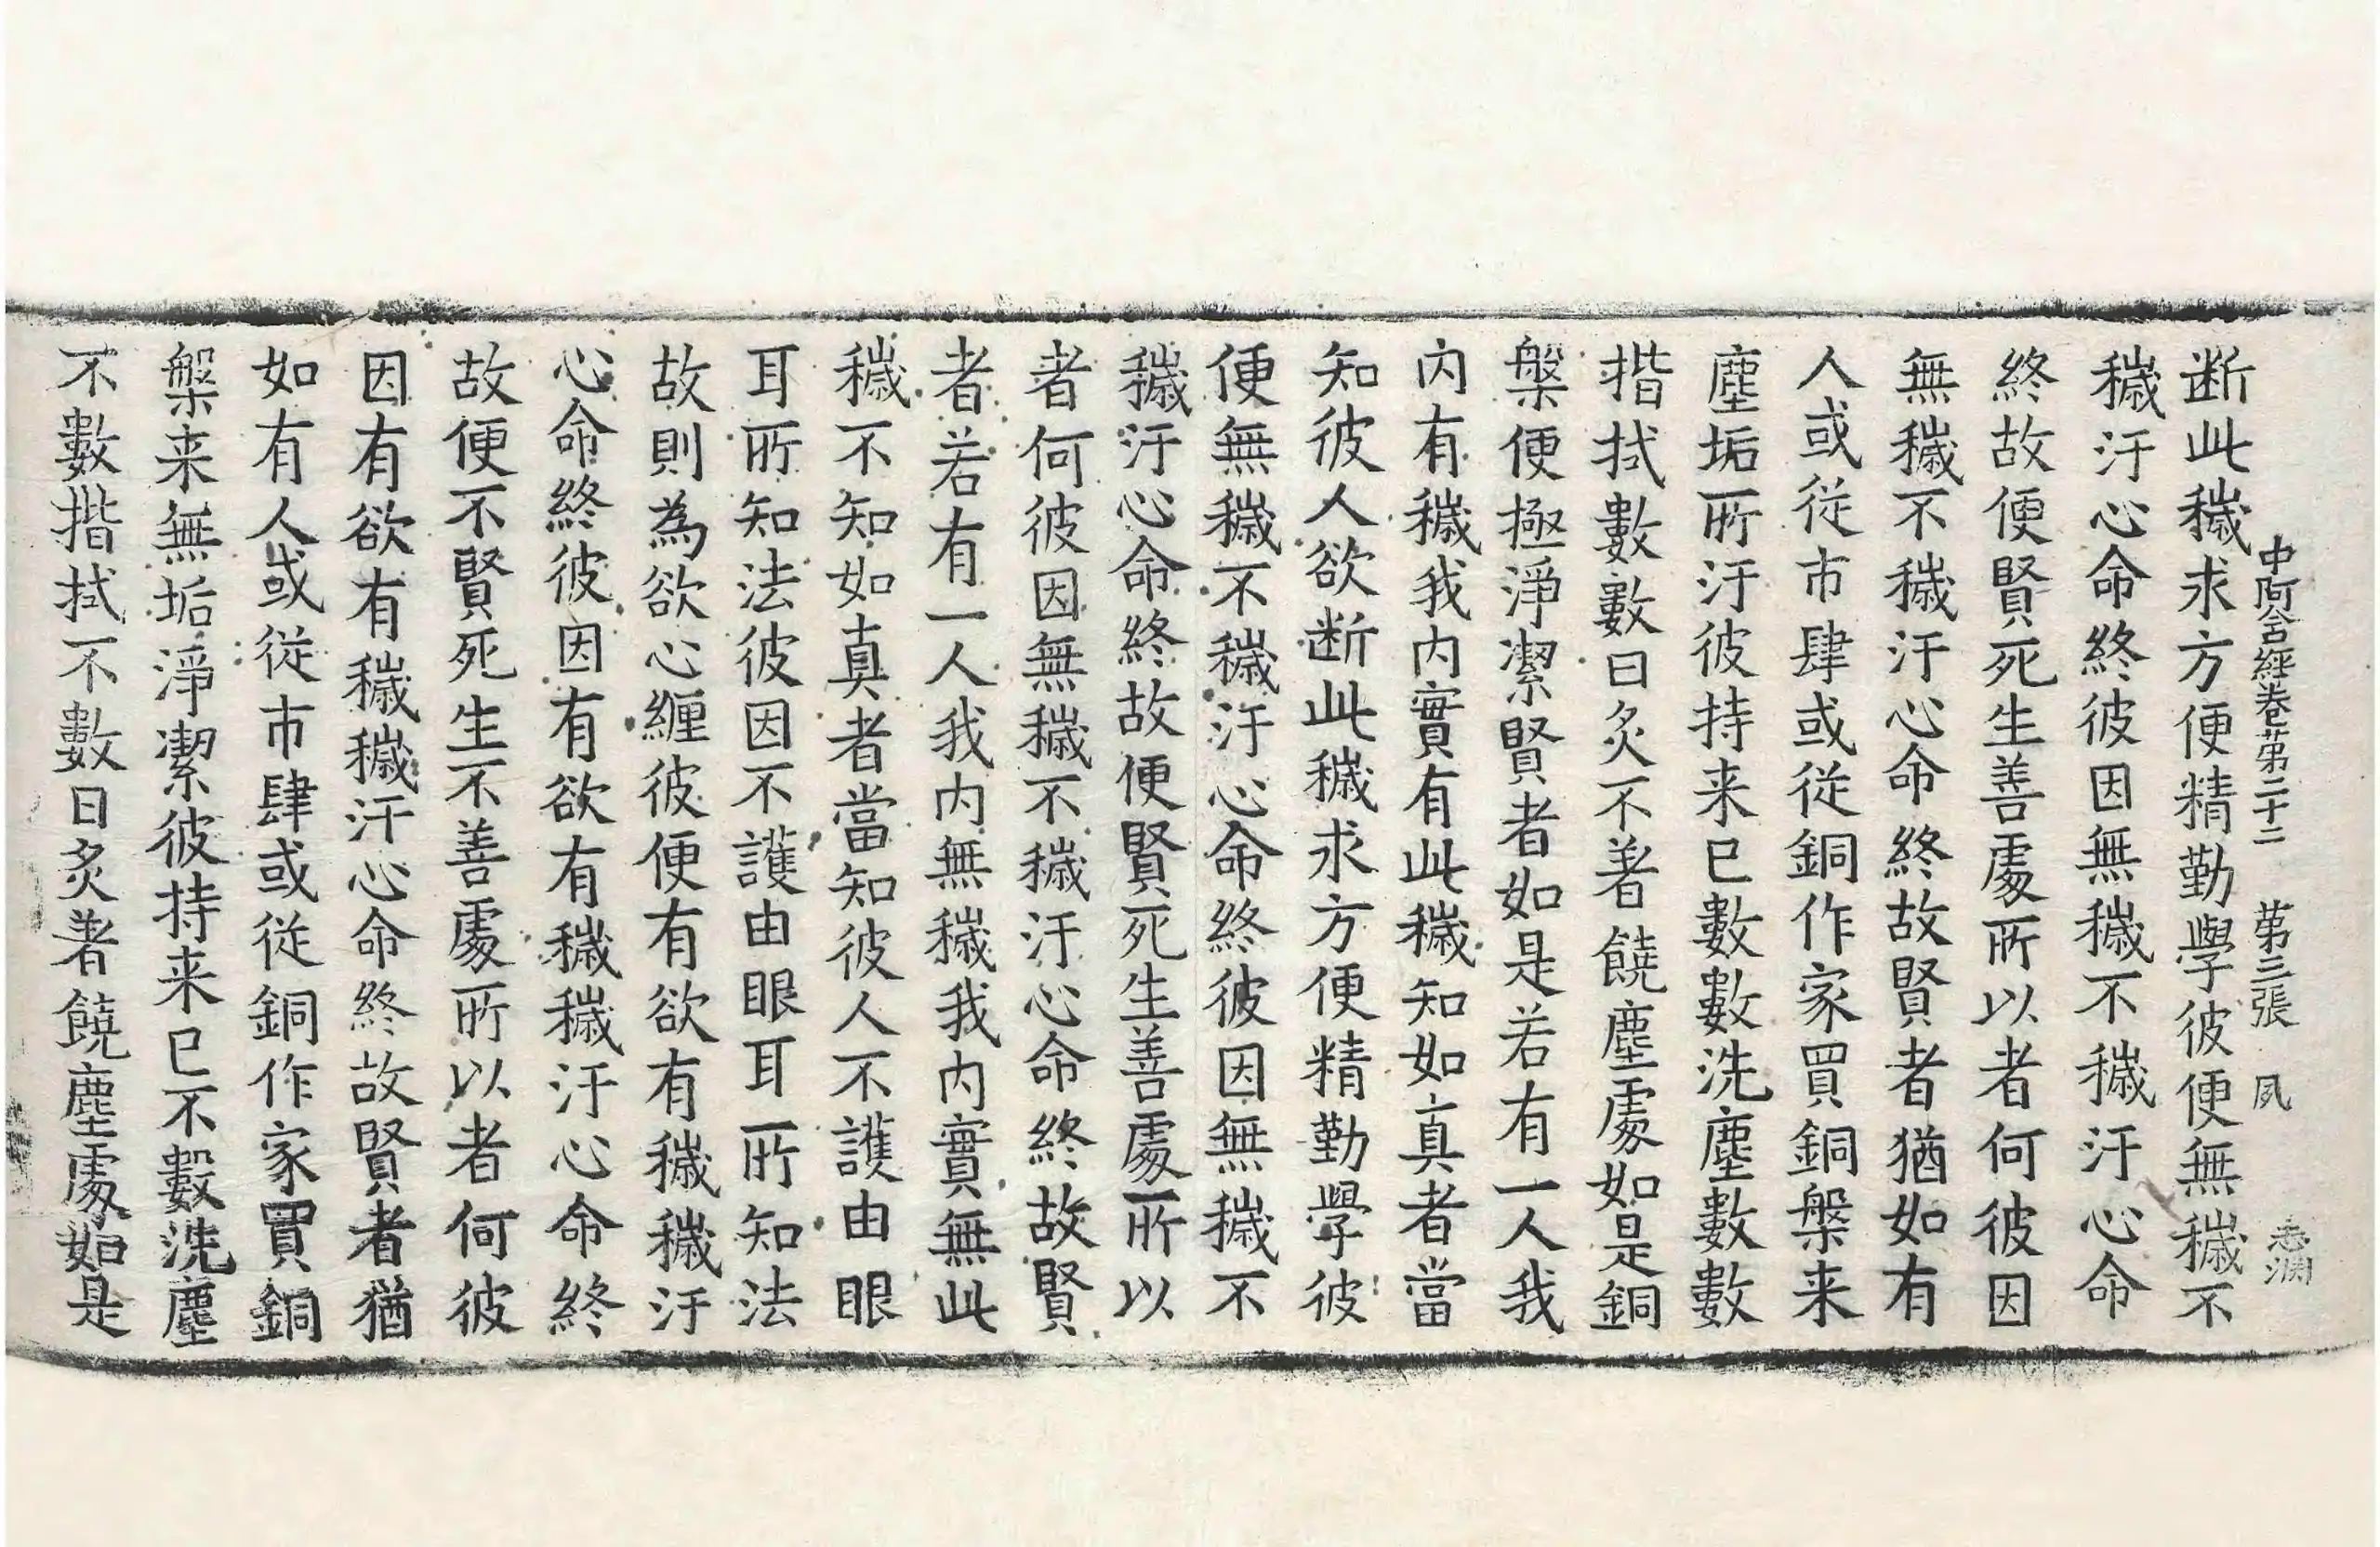 中阿含經卷苐二十二 苐三張 夙
断此穢求方便精勤學彼便無穢不
穢汙心命終彼因無穢不穢汙心命
終故便賢死生善處所以者何彼因
無穢不穢汙心命終故賢者猶如有
人或從市肆或從銅作家買銅槃来
塵垢所汙彼持来已數數洗塵數數
揩拭數數日炙不著饒塵處如是銅
槃便極淨潔賢者如是若有一人我
内有穢我内實有此穢知如真者當
知彼人欲断此穢求方便精勤學彼
便無穢不穢汙心命終彼因無穢不
穢汙心命終故便賢死生善處所以
者何彼因無穢不穢汙心命終故賢
者若有一人我内無穢我内實無此
穢不知如真者當知彼人不護由眼
耳所知法彼因不護由眼耳所知法
故則為欲心纏彼便有欲有穢穢汙
心命終彼因有欲有穢穢汙心命終
故便不賢死生不善處所以者何彼
因有欲有穢穢汙心命終故賢者猶
如有人或從市肆或從銅作家買銅
槃来無垢淨潔彼持来已不數洗塵
不數揩拭不數日炙著饒塵處如是